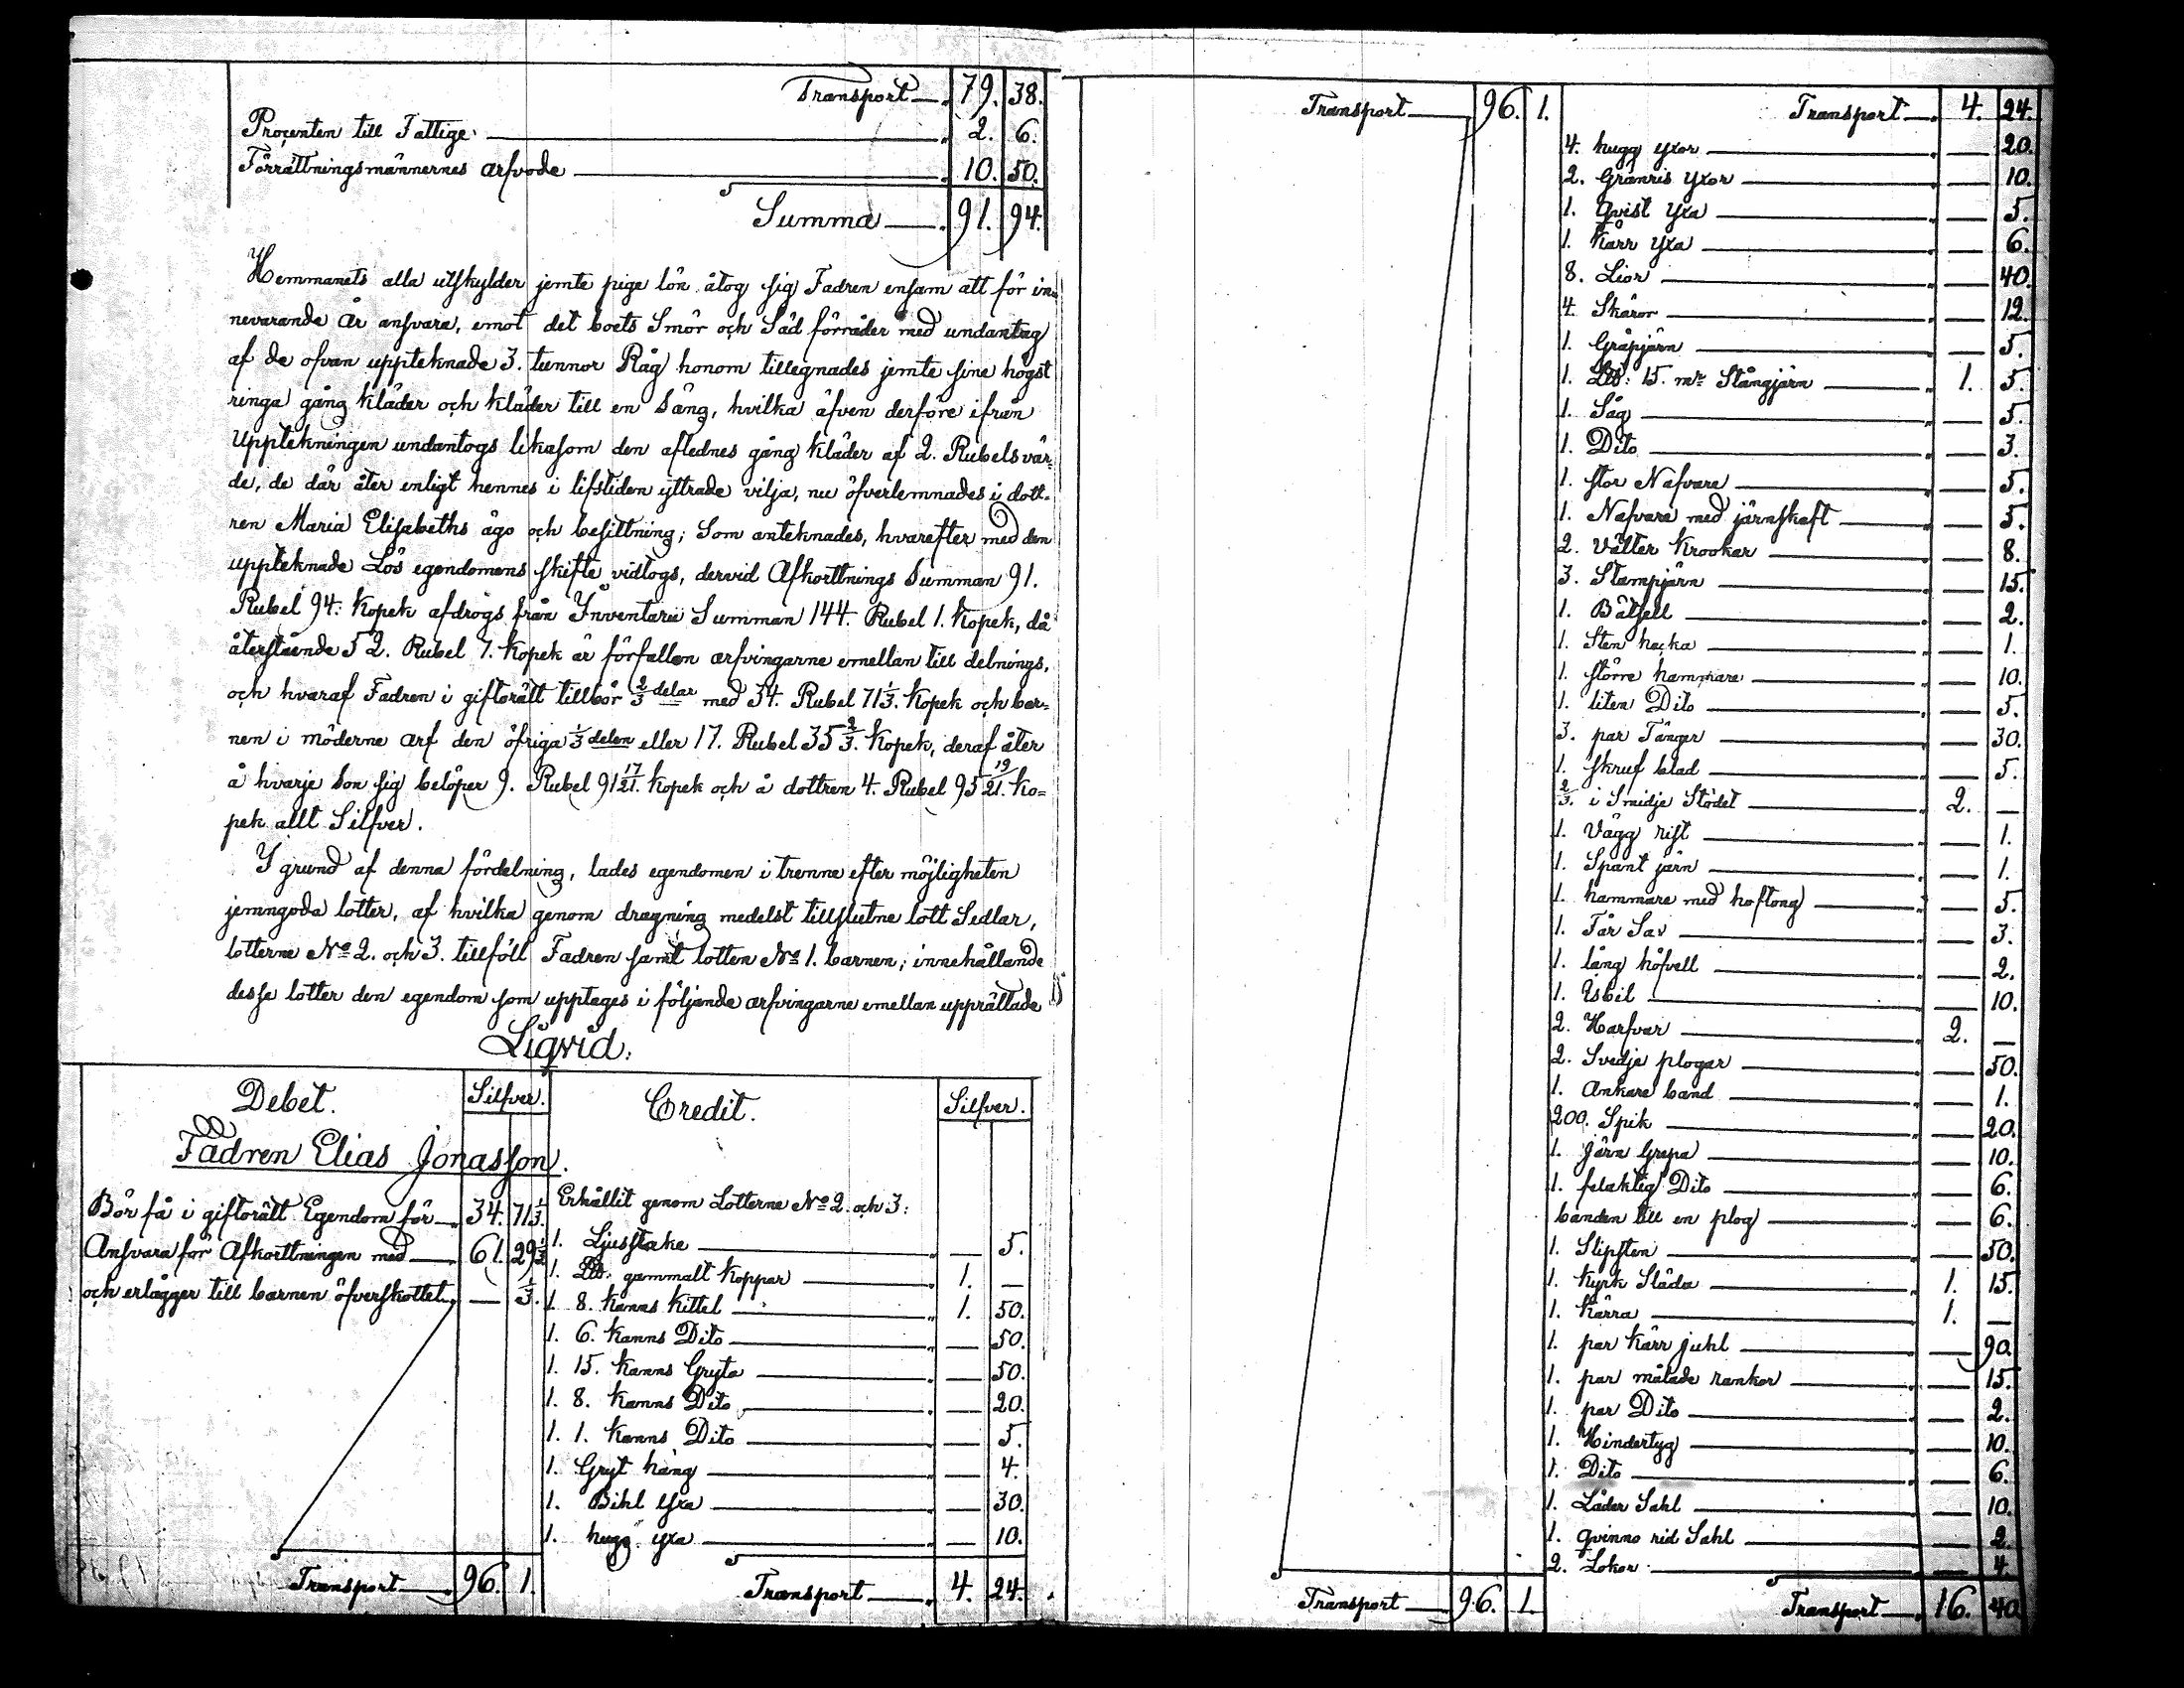 Transport — 79. 38.
Procenten till Fattige — 2. 6.
Förrättningsmännernes arfvode — 10. 50.
Summa — 91. 94.
Hemmanets alla utskylder jemte pige lön åtog sig Fadren ensam att för in=
nevarande År ansvara, emot det boets Smör och Säd förråder med undantag
af de ofvan uppteknade 3. tunnor Råg honom tillegnades jemte sine högst
ringa gång kläder och kläder till en Säng, hvilka äfven derföre ifrån
Upptekningen undantogs likasom den aflednes gång kläder af 2. Rubels vär=
de, de där åter enligt hennes i lifstiden yttrade vilja, nu öfverlemnades i dott=
ren Maria Elisabeths ägo och besittning; Som anteknades, hvarefter med den
uppteknade Lös egendomens skifte vidtogs, dervid Afkorttnings Summan 91.
Rubel 94. Kopek afdrogs från Inventarii Summan 144. Rubel 1. Kopek, då
återstående 52. Rubel 7. Kopek är förfallen arfvingarne emellan till delnings,
och hvaraf Fadren i giftorätt tillkår 2/3 delar med 34. Rubel 71 1/3. Kopek och bar=
nen i möderne arf den öfriga 1/3 delen eller 17. Rubel 35 2/3. Kopek, deraf åter
å hvarje Son sig belöper 9. Rubel 91 17/21. Kopek och å dottren 4. Rubel 95 19/21. Ko=
pek allt Silfver.
I grund af denna fördelning, lades egendomen i trenne efter möjligheten
jemngoda lotter, af hvilka genom dragning medelst tillslutne lott Sedlar,
lotterne No 2. och 3. tillföll Fadren samt lotten No 1. barnen; innehållande
desse lotter den egendom som upptages i följande arfvingarne emellan upprättade
Liqvid:
Debet. Silfver. Credit. Silfver.
Fadren Elias Jonasson.
Bör få i giftorätt Egendom för — 34. 71 1/3.
Ansvara för Afkorttningen med — 61. 29 1/3
och erlägger till barnen öfverskottet — 1/3.
Transport — 96. 1.
Erhållit genom Lotterne No 2. och 3:
1. Ljusstake — 5.
1. L℔. gammalt Koppar — 1. —
1. 8. Kanns Kittel — 1. 50.
1. 6. Kanns Dito — 50.
1. 15. Kanns Gryta — 50.
1. 8. Kanns Dito — 20.
1. 1. Kanns Dito — 5.
1. Gryt häng — 4.
1. Bihl Yxa — 30.
1. hugg yxa — 10.
Transport — 4. 24.
Transport — 96. 1.
Transport — 96. 1.
Transport — 4. 24.
4. hugg yxor — 20.
2. Granris Yxor — 10.
1. Qvist Yxa — 5.
1. Kärr Yxa — 6.
8. Lior — 40.
4. Skäror — 12.
1. Gräpjärn — 5.
1. L℔: 15. mr Stångjärn — 1. 5.
1. Såg — 5.
1. Dito — 3.
1. stor Nafvare — 5.
1. Nafvare med järnskaft — 5.
2. Välter Krookar — 8.
3. Stampjärn — 15.
1. Båtsell — 2.
1. Sten hacka — 1.
1. större hammare — 10.
1. liten Dito — 5.
3. par Tänger — 30.
1. skruf blad — 5.
2/3. i Smidje Städet — 2. —
1. Vägg rist — 1.
1. Spant järn — 1.
1. hammare med hoftong — 5.
1. Får Sax — 3.
1. lång höfvell — 2.
1. Isbil — 10.
2. Harfvar — 2. —
2. Svedje plogar — 50.
1. Ankare band — 1.
200. Spik — 20.
1. Järn Grepa — 10.
1. felaktig Dito — 6.
banden till en plog — 6.
1. Slipsten — 50.
1. Kyrk Släda — 1. 15.
1. Kärra — 1. —
1. par Kärr juhl — 90.
1. par målade rankor — 15.
1. par Dito — 2.
1. Hindertyg — 10.
1. Dito — 6.
1. Läder Sahl — 10.
1. qvinno rid Sahl — 2.
2. Lokor — 4.
Transport — 16. 40